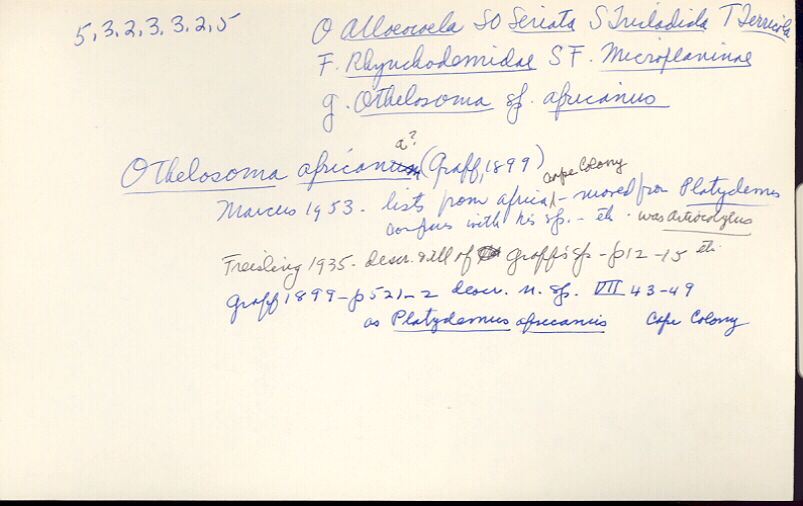 5, 3, 2, 3, 3, 2, 5
O Alloeocoela SO Seriata S Tricladida T Terricola
F. Rhynchodemidae SF. Microplaninae
g. Othelosoma sp. africanus
a?
Othelosoma africanum (Graff, 1899)
Cape Colony
Marcus 1953 - lists from Africa - moved from Platydemus
confers with his sp. - th. was Artiocotylus
Freisling 1935 - descr. & ill of Graff's sp - p12 - 15 th
Graff 1899 - p521-2 descr. n. sp. VII 43-49
as Platydemus africanus Cape Colony